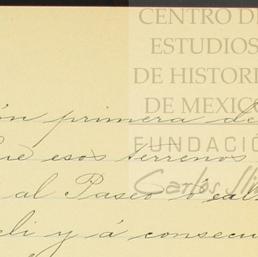 CENTRO DE
ESTUDIOS
DE HISTORI
DE MEXIC
FUNDACIÓ
Carlos Sli
ón primera de
que esos terrenos
al Paseo ó cal
eli y á consecu